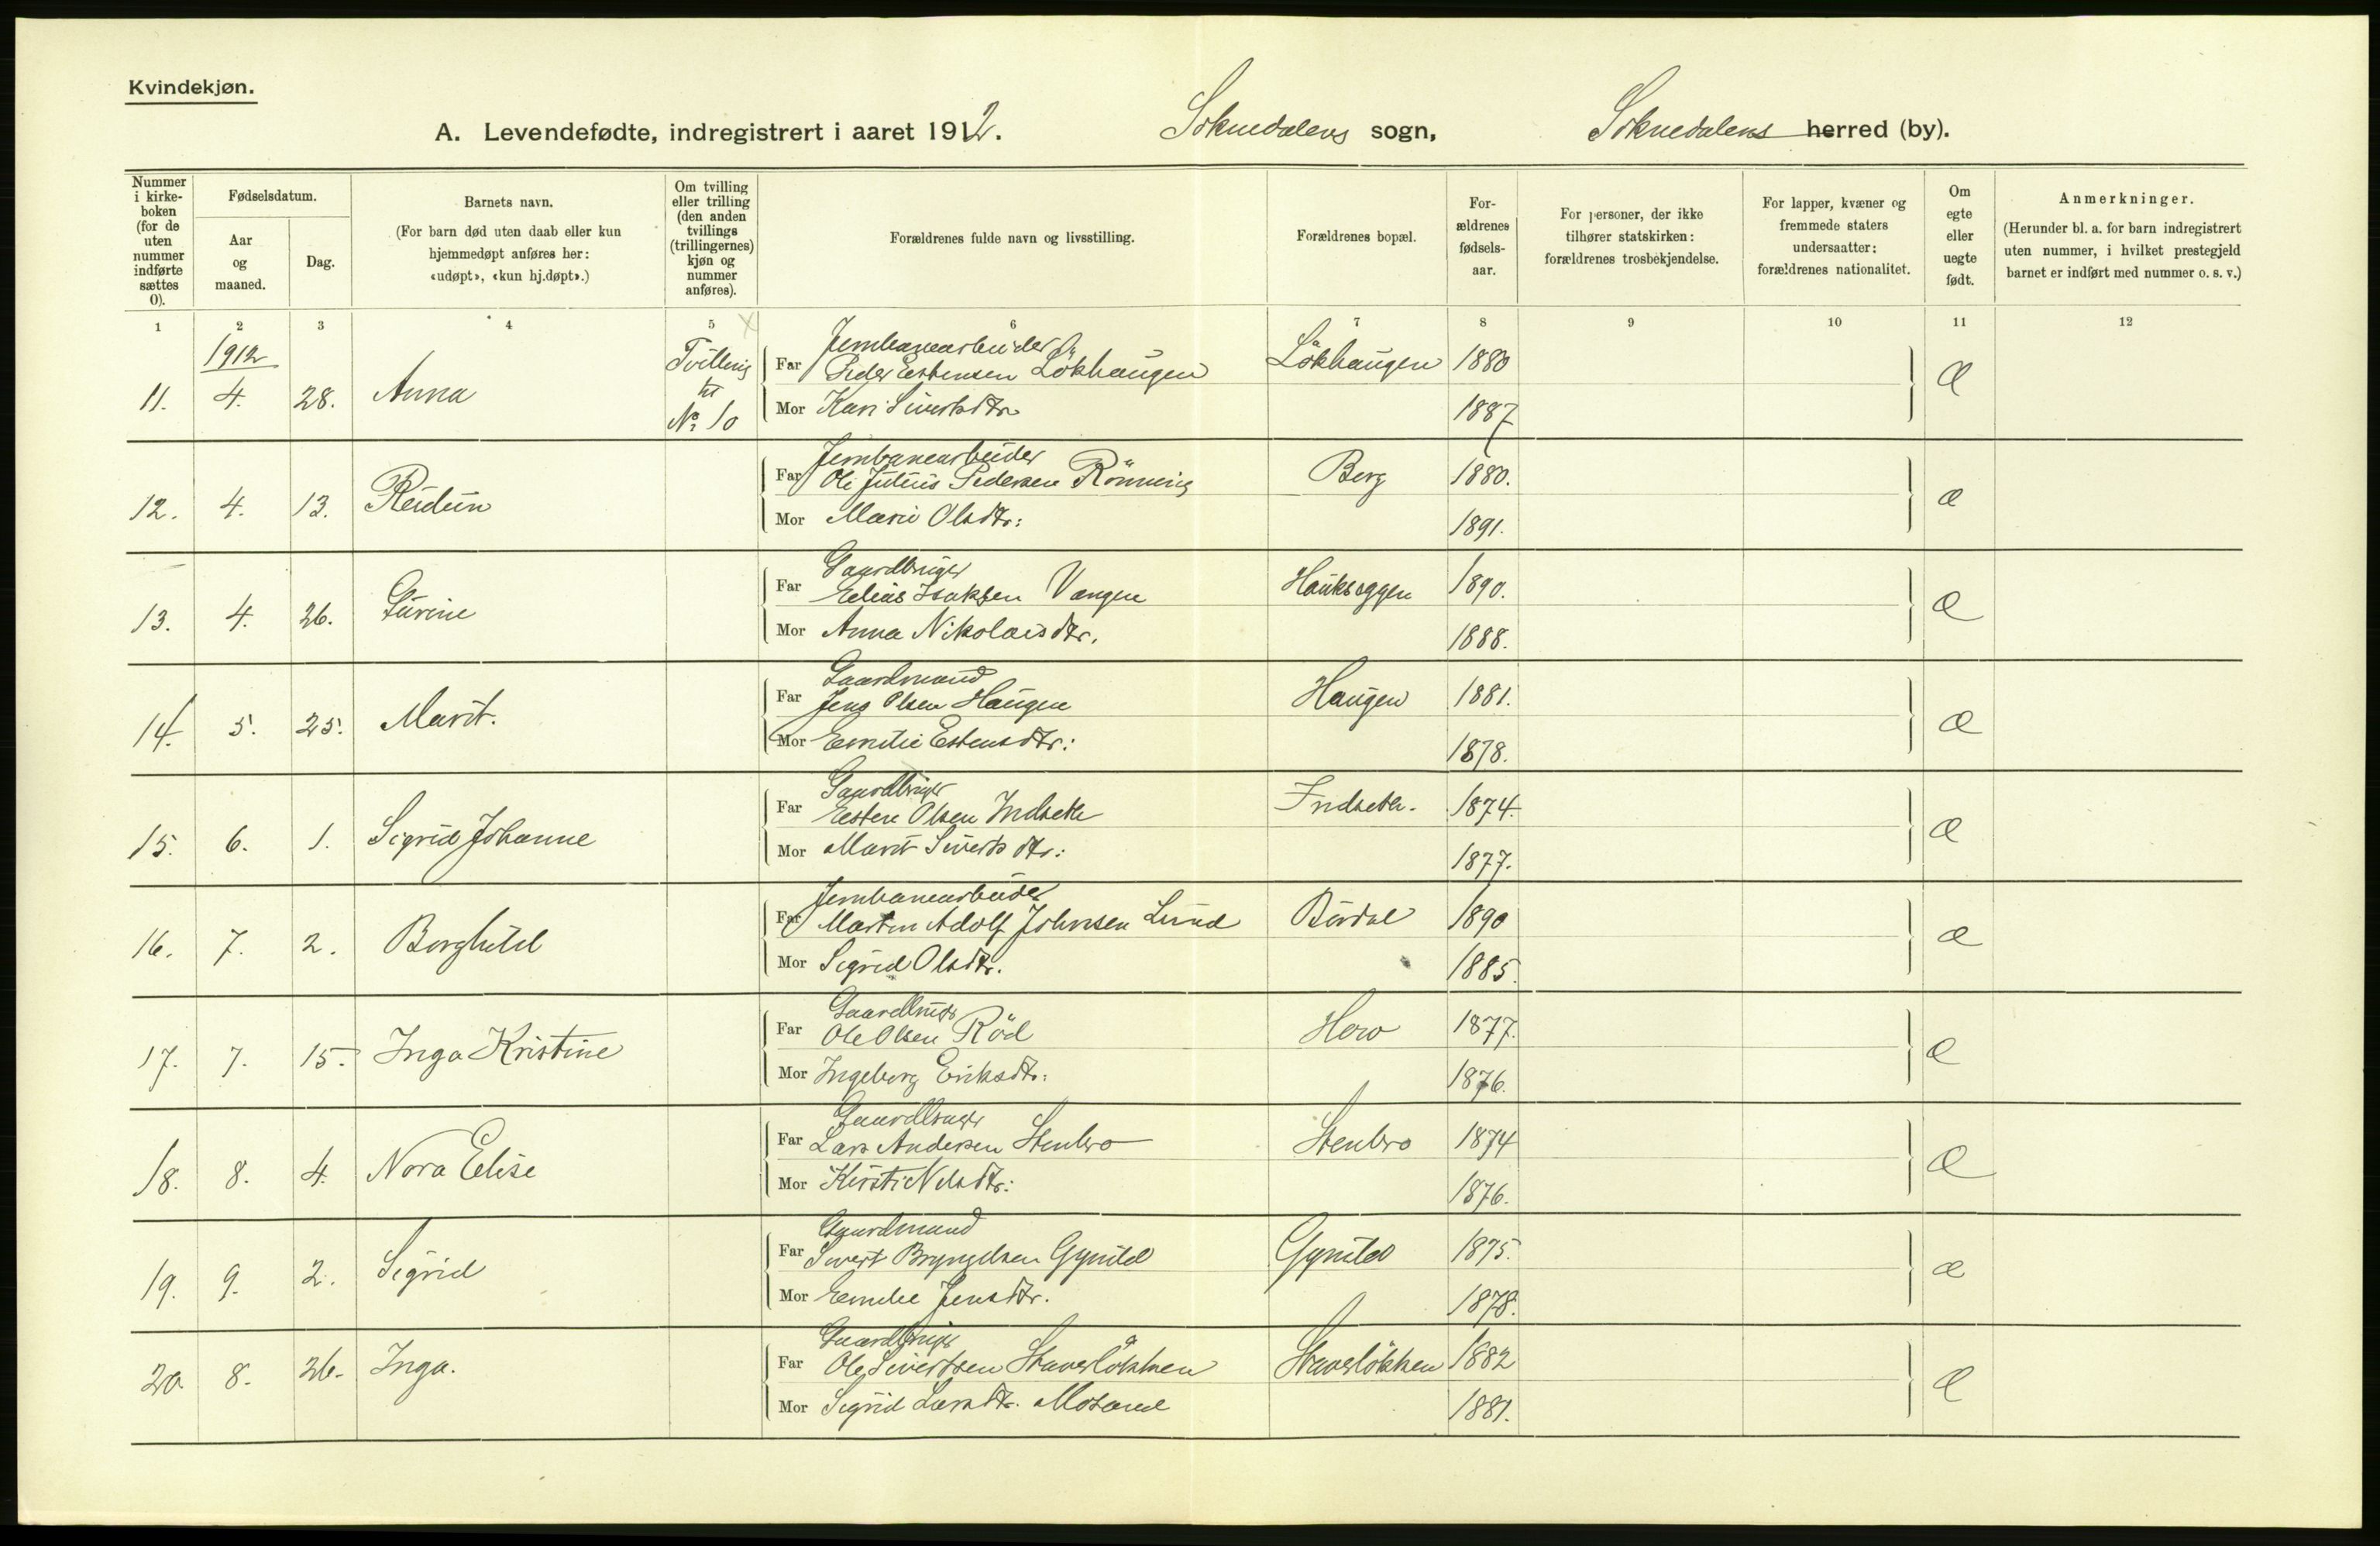 Kvindekjøn.
A. Levendefødte, indregistrert i aaret 1912. Soknedalens sogn, Soknedalens herred (by).
Nummer i kirke-boken (for de uten nummer indførte sættes 0).
Fødselsdatum.
Aar og maaned.
Dag.
Barnets navn.
(For barn død uten daab eller kun hjemmedøpt anføres her: «udøpt», «kun hj.døpt».)
Om tvilling eller trilling (den anden tvillings (trillingernes) kjøn og nummer anføres).
Forældrenes fulde navn og livsstilling.
Forældrenes bopæl.
For-ældrenes fødsels-aar.
For personer, der ikke tilhører statskirken: forældrenes trosbekjendelse.
For lapper, kvæner og fremmede staters undersaatter: forældrenes nationalitet.
Om egte eller uegte født.
Anmerkninger.
(Herunder bl. a. for barn indregistrert uten nummer, i hvilket prestegjeld barnet er indført med nummer o. s. v.)
1 2 3 4 5 6 7 8 9 10 11 12
1912
11. 4. 28. Anna Tvilling til No 10
Jernbanearbeider
Far Peder Estensen Lökhaugen Lökhaugen 1880 Æ
Mor Kari Sivertsdtr 1887
12. 4. 13. Reidun
Jernbanearbeider
Far Ole Julius Pedersen Rönning Berg 1880. æ
Mor Marie Olsdtr: 1891.
13. 4. 26. Gurine
Gaardbruger
Far Elias Isaksen Vangen Haukseggen 1890. Æ
Mor Anna Nikolaisdtr. 1888.
14. 5. 25. Marit.
Gaardmand
Far Jens Olsen Haugen Haugen 1881. Æ
Mor Emilie Estensdtr: 1878.
15. 6. 1. Sigrid Johanne
Gaardbruger
Far Esten Olsen Indseth Indseth. 1874. Æ
Mor Marit Siverts dtr: 1877.
16. 7. 2. Borghild
Jernbanearbeider
Far Martin Adolf Johnsen Lund Bürdal 1890 æ
Mor Sigrid Olsdtr. 1885.
17. 7. 15. Inga Kristine
Gaardbruger
Far Ole Olsen Röd Hov 1877. Æ
Mor Ingeborg Eriksdtr: 1876.
18. 8. 4. Nora Elise
Gaardbruger
Far Lars Andersen Stenbro Stenbro 1874 Æ
Mor Kirsti Nilsdtr: 1876.
19. 9. 2. Sigrid
Gaardmand
Far Sivert Bryngelsen Gynild Gynild 1875. æ
Mor Emelie Jensdtr. 1878.
20. 8. 26. Inga.
Gaardbruger
Far Ole Sivertsen Staverlökken Staverlökken 1882 Æ
Mor Sigrid Larsdtr. Mosand 1881.